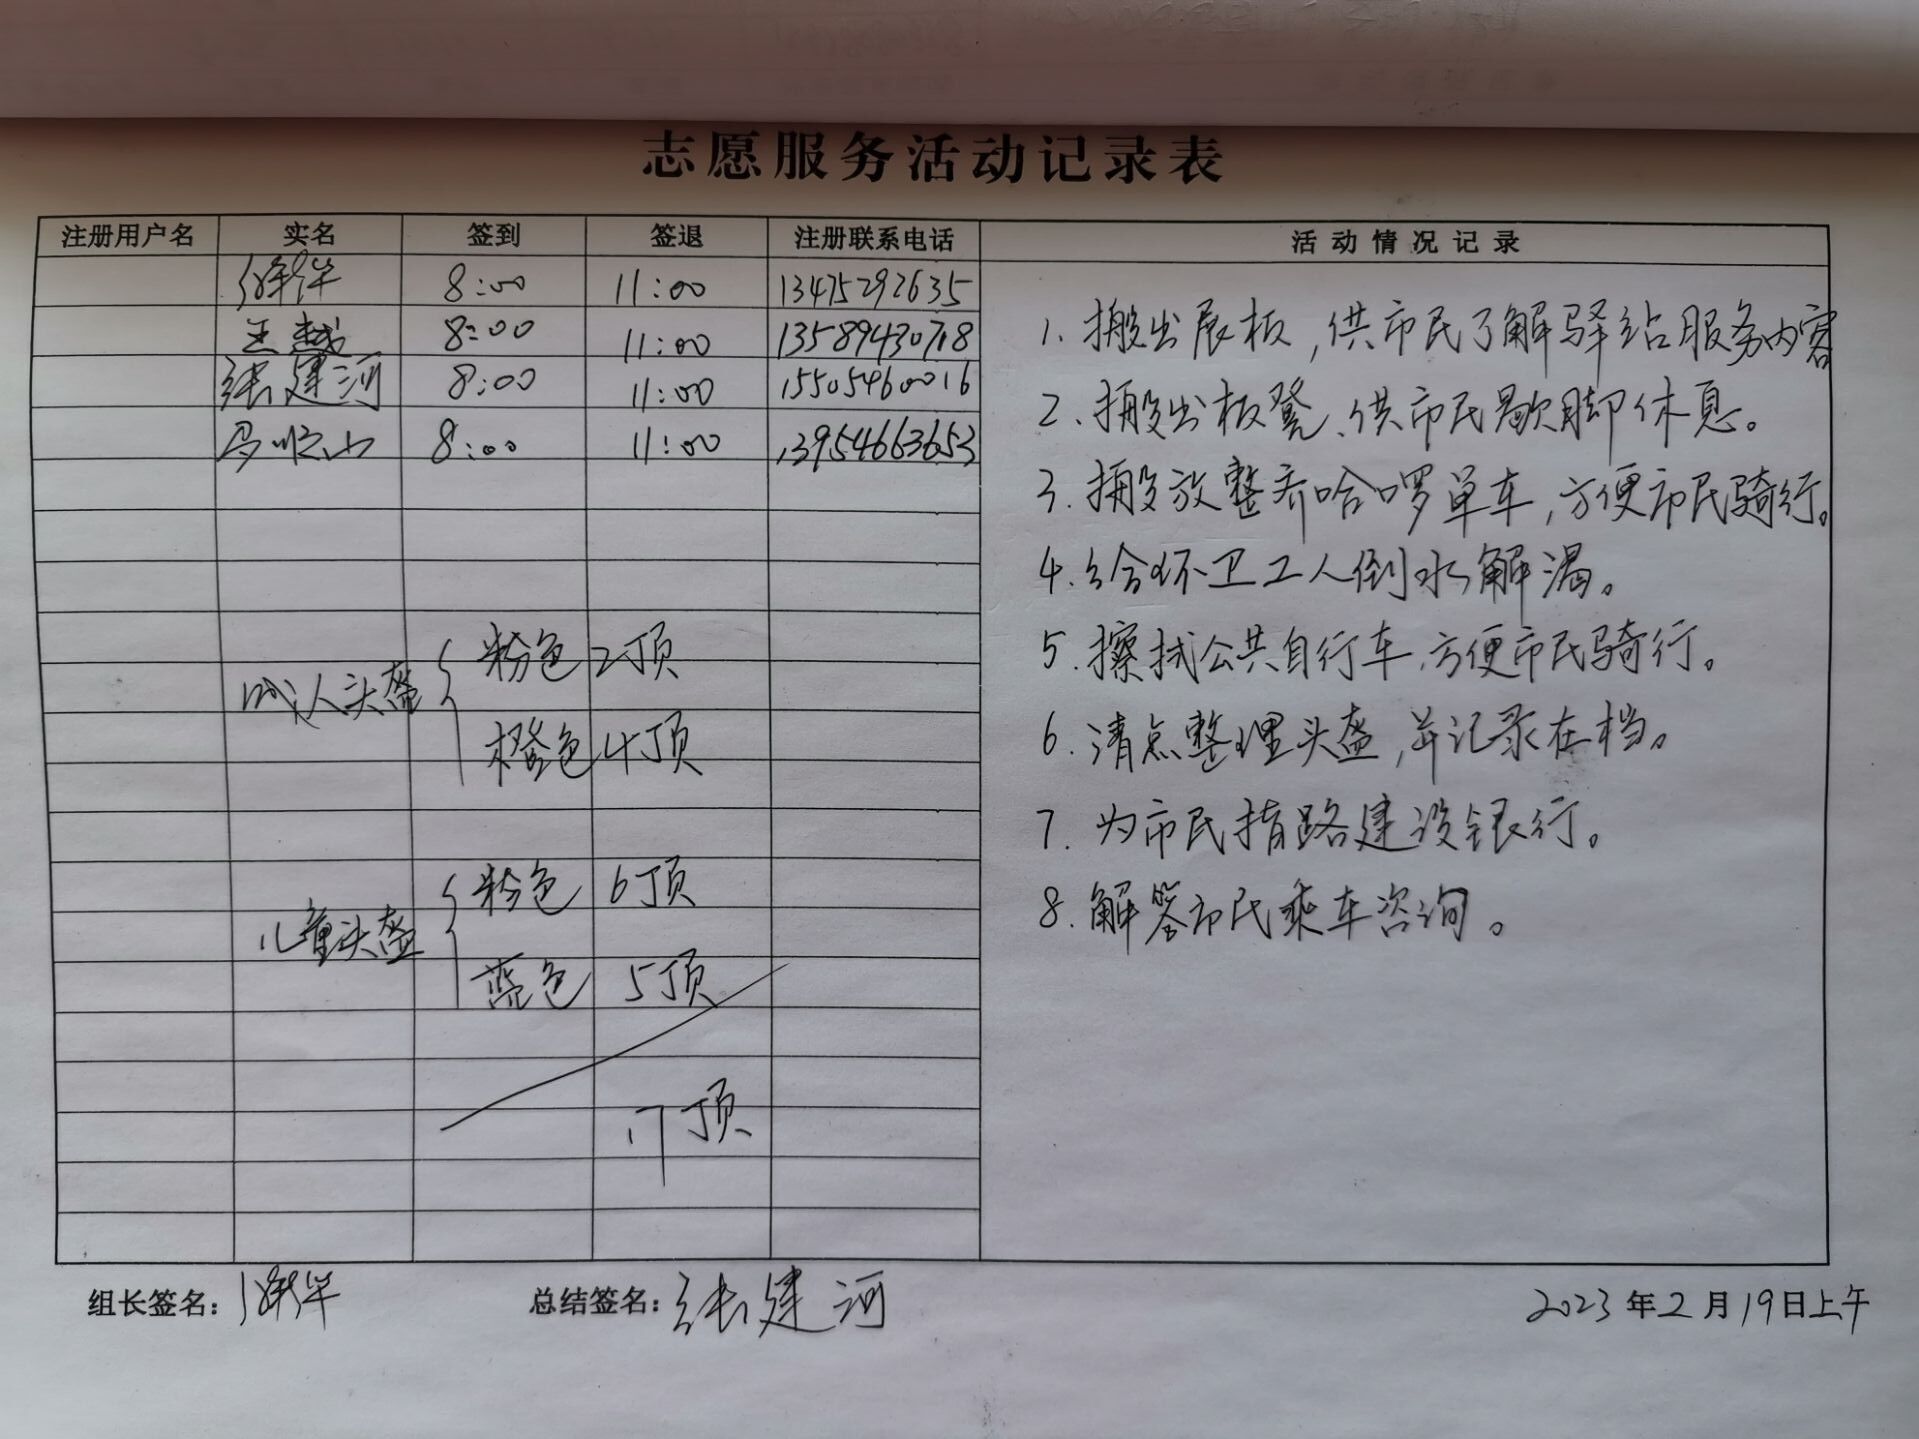 志愿服务活动记录表
注册用户名 实名 签到 签退 注册联系电话 活动情况记录
8:00 11:00 13475292635
王越 8:00 11:00 13589430768
张建河 8:00 11:00 15505460016
马顺山 8:00 11:00 13954663653
成人头盔 粉色 2顶
橙色 4顶
儿童头盔 粉色 6顶
蓝色 5顶
17顶
1. 搬出展板,供市民了解驿站服务内容
2、搬出板凳、供市民歇脚休息。
3. 搬放整齐哈啰单车,方便市民骑行。
4. 给环卫工人倒水解渴。
5. 擦拭公共自行车,方便市民骑行。
6. 清点整理头盔,并记录在档。
7. 为市民指路建设银行。
8. 解答市民乘车咨询。
组长签名: 总结签名:张建河 2023年2月19日上午